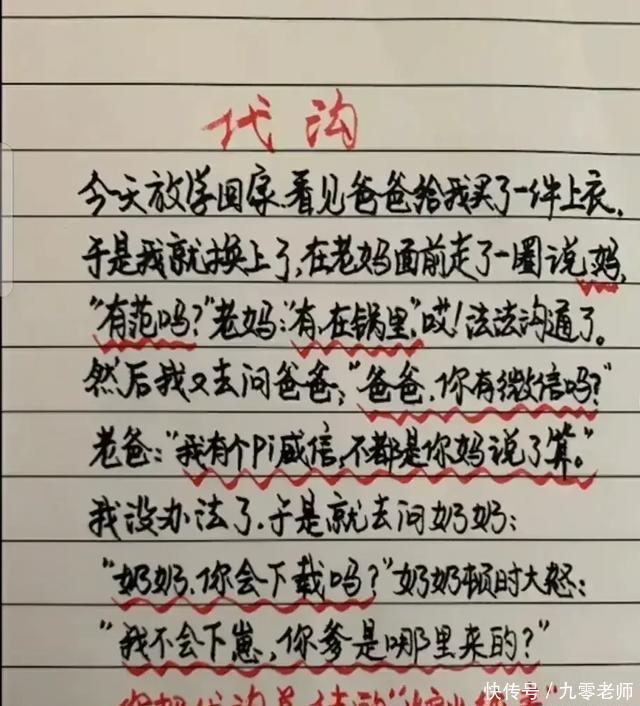 代沟
今天放学回家,看见爸爸给我买了一件上衣,
于是我就换上了,在老妈面前走了一圈说妈,
“有范吗?”老妈:“有,在锅里”,哎!法法沟通了。
然后我又去问爸爸;“爸爸,你有微信吗?”
老爸:“我有个Pi威信,不都是你妈说了算。”
我没办法了,于是就去问奶奶:
“奶奶,你会下载吗?”奶奶顿时大怒:
“我不会下崽,你爹是哪里来的?”
快传号/九零老师